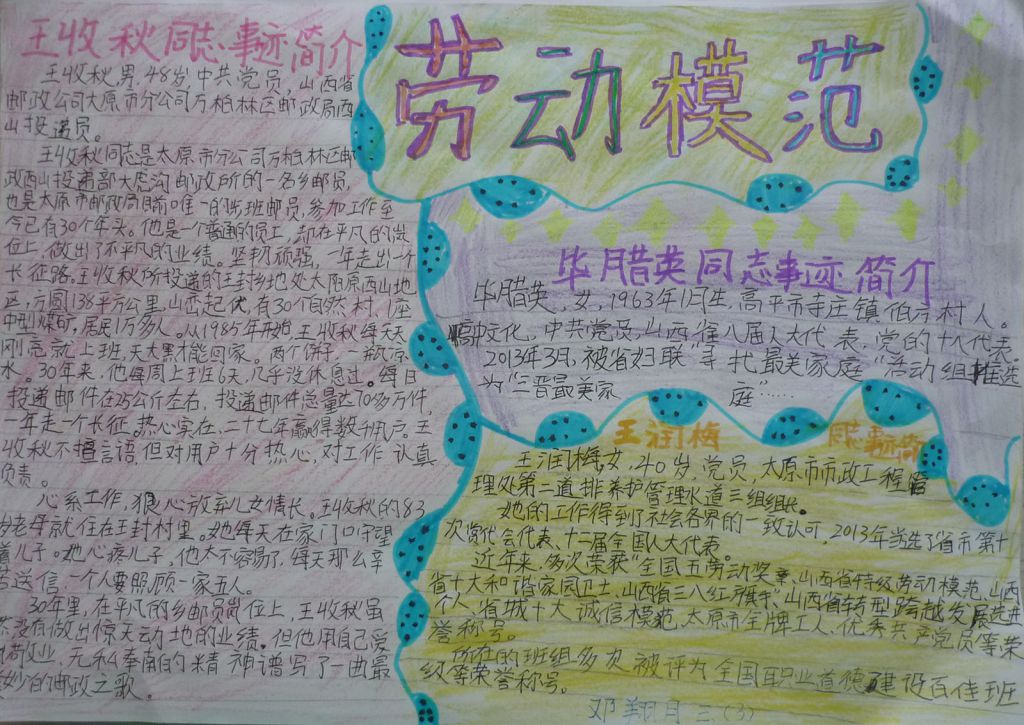 劳动模范
王收秋同志事迹简介
王收秋,男,48岁,中共党员,山西省
邮政公司太原市分公司万柏林区邮政局西
山投递员。
王收秋同志是太原市分公司万柏林区邮
政西山投递部大虎沟邮政所的一名乡邮员,
也是太原市邮政局目前唯一的出班邮员,参加工作至
今已有30个年头。他是一个普通的员工,却在平凡的岗
位上,做出了不平凡的业绩。坚韧顽强,一年走出一个
长征路,王收秋所投递的王封乡地处太原西山地
区,方圆138平方公里,山峦起伏,有30个自然村,1座
中型煤矿,居民1万多人。从1985年开始,王收秋每天天
刚亮就上班,天大黑才能回家。两个饼子,一瓶凉
水。30年来,他每周上班6天,几乎没休息过。每日
投递邮件在25公斤左右,投递邮件总量达70多万件,
一年走一个长征,热心实在,二十七年赢得数千用户。王
收秋不擅言语,但对用户十分热心,对工作认真
负责。
心系工作,狠心放弃儿女情长。王收秋的83
岁老母就住在王封村里。她每天在家门口守望
着儿子。她心疼儿子,他太不容易了,每天那么辛
苦送信,一个人要照顾一家五人。
30年里,在平凡的乡邮员岗位上,王收秋虽
然没有做出惊天动地的业绩。但他用自己爱
岗敬业,无私奉南的精神谱写了一曲最
妙的邮政之歌。
毕腊英同志事迹简介
毕腊英,女,1963年1月生,高平市寺庄镇伯方村人。
高中文化,中共党员,山西省八届人大代表,党的十八代表。
2013年3月,被省妇联“寻找最美家庭”活动组推选
为“三晋最美家庭”……
王润梅同志事迹简
王润梅,女,40岁,党员,太原市市政工程管
理处第二道排养护管理水道三组组长。
她的工作得到了社会各界的一致认可,2013年当选了省市第十
次党代会代表、十二届全国人大代表。
近年来,多次荣获“全国五劳动奖章、山西省特级劳动模范、山西
省十大和谐家园卫士、山西省三八红旗手、山西省转型跨越发展先进
个人、省城十大诚信模范、太原市金牌工人、优秀共产党员等荣
誉称号。
所在的班组多次被评为全国职业道德建设百佳班
级等荣誉称号。
邓翔月 三(3)